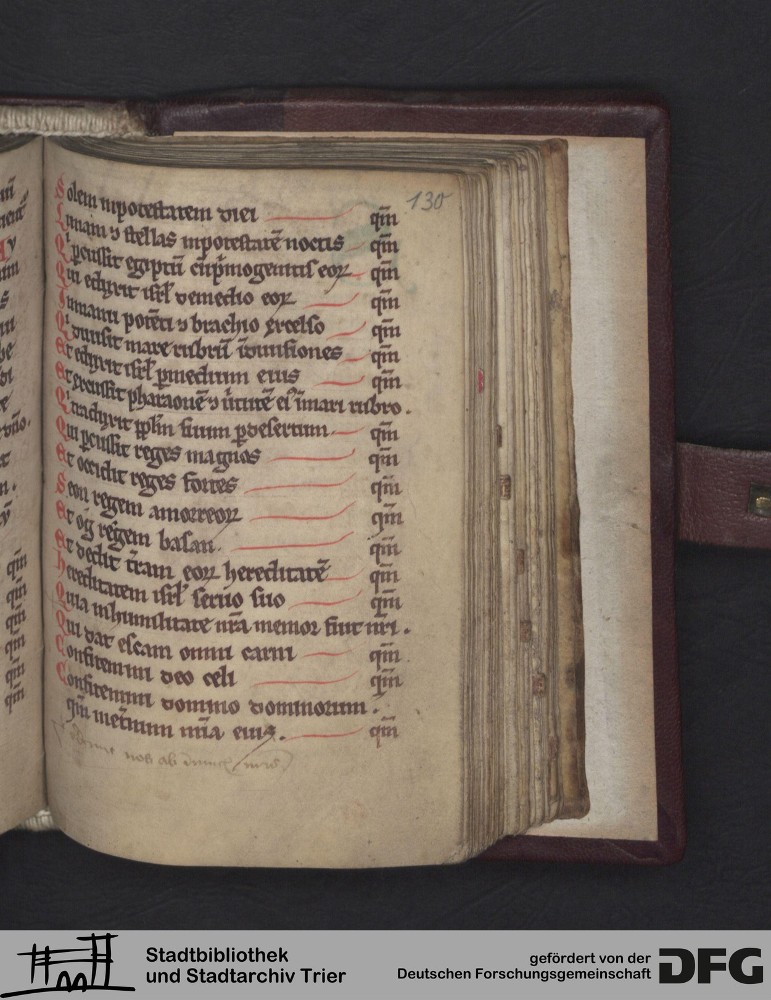 130
Solem inpotestatem diei qm̄
Lunam ⁊ stellas inpotestatē noctis qm̄
Q' ꝑcussit egiptū cūp̄mogenitis eoꝝ qm̄
Qui eduxit isrl̄ demedio eoꝝ qm̄
Inmanu potēti ⁊ brachio excelso qm̄
Q' diuisit mare rubrū īdiuisiones qm̄
Et eduxit isrl̄ ꝑmedium eius qm̄
Et excussit pharaonē ⁊ ū̓tutē ei' īmari rubro.
Q' traduxit pplm̄ suum ꝑdesertum qm̄
Qui ꝑcussit reges magnos qm̄
Et occidit reges fortes qm̄
Seon regem amorreoꝝ qm̄
Et og regem basan. qm̄
Et dedit t̄ram eoꝝ hereditatē qm̄
hereditatem isrl̄ seruo suo qm̄
Quia inhumilitate nr̄a memor fuit nri.
Qui dat escam omni carni qm̄
Confitemini deo celi qm̄
Confitemini domino dominorum.
qm̄ inet̄num mīa eius. qm̄
nos ab
qm̄
qm̄
qm̄
qm̄
qm̄
qm̄
Stadtbibliothek
und Stadtarchiv Trier
gefördert von der
Deutschen Forschungsgemeinschaft
DFG